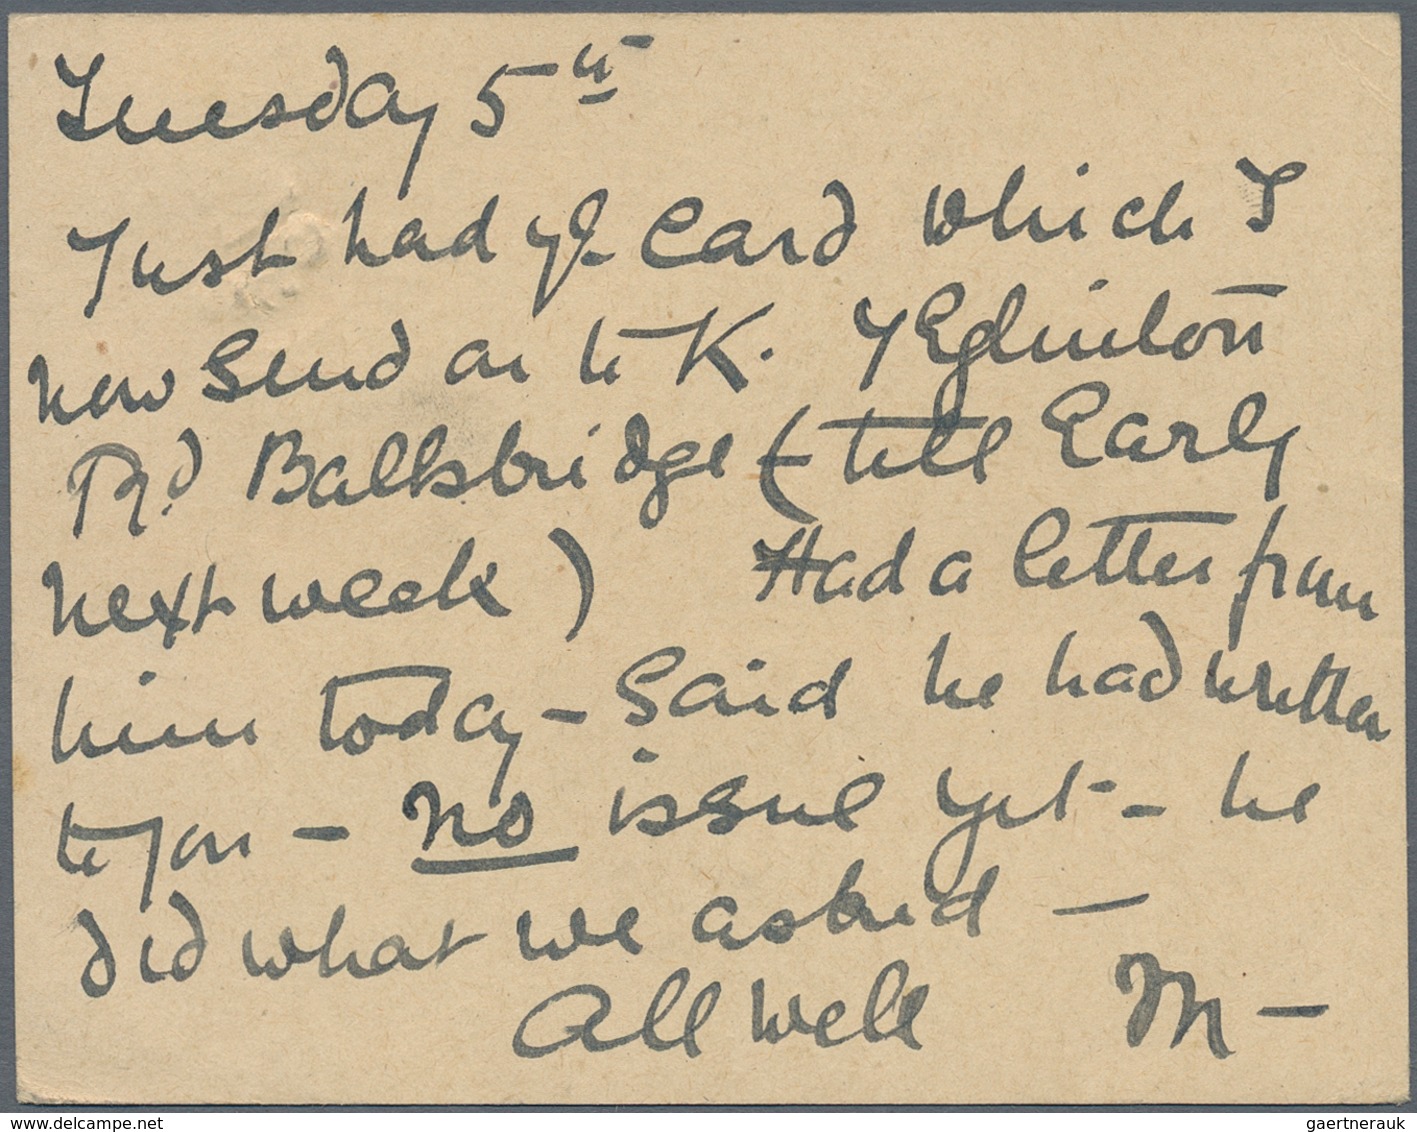 Tuesday 5th
Just had yr card which I
now send on to K. 7 Eglinton
Rd Ballsbridge (till Early
next week) Had a letter from
him today - Said he had written
to you - no issue yet - he
did what we asked -
All well M -
gaertnerauk @ delcampe.net